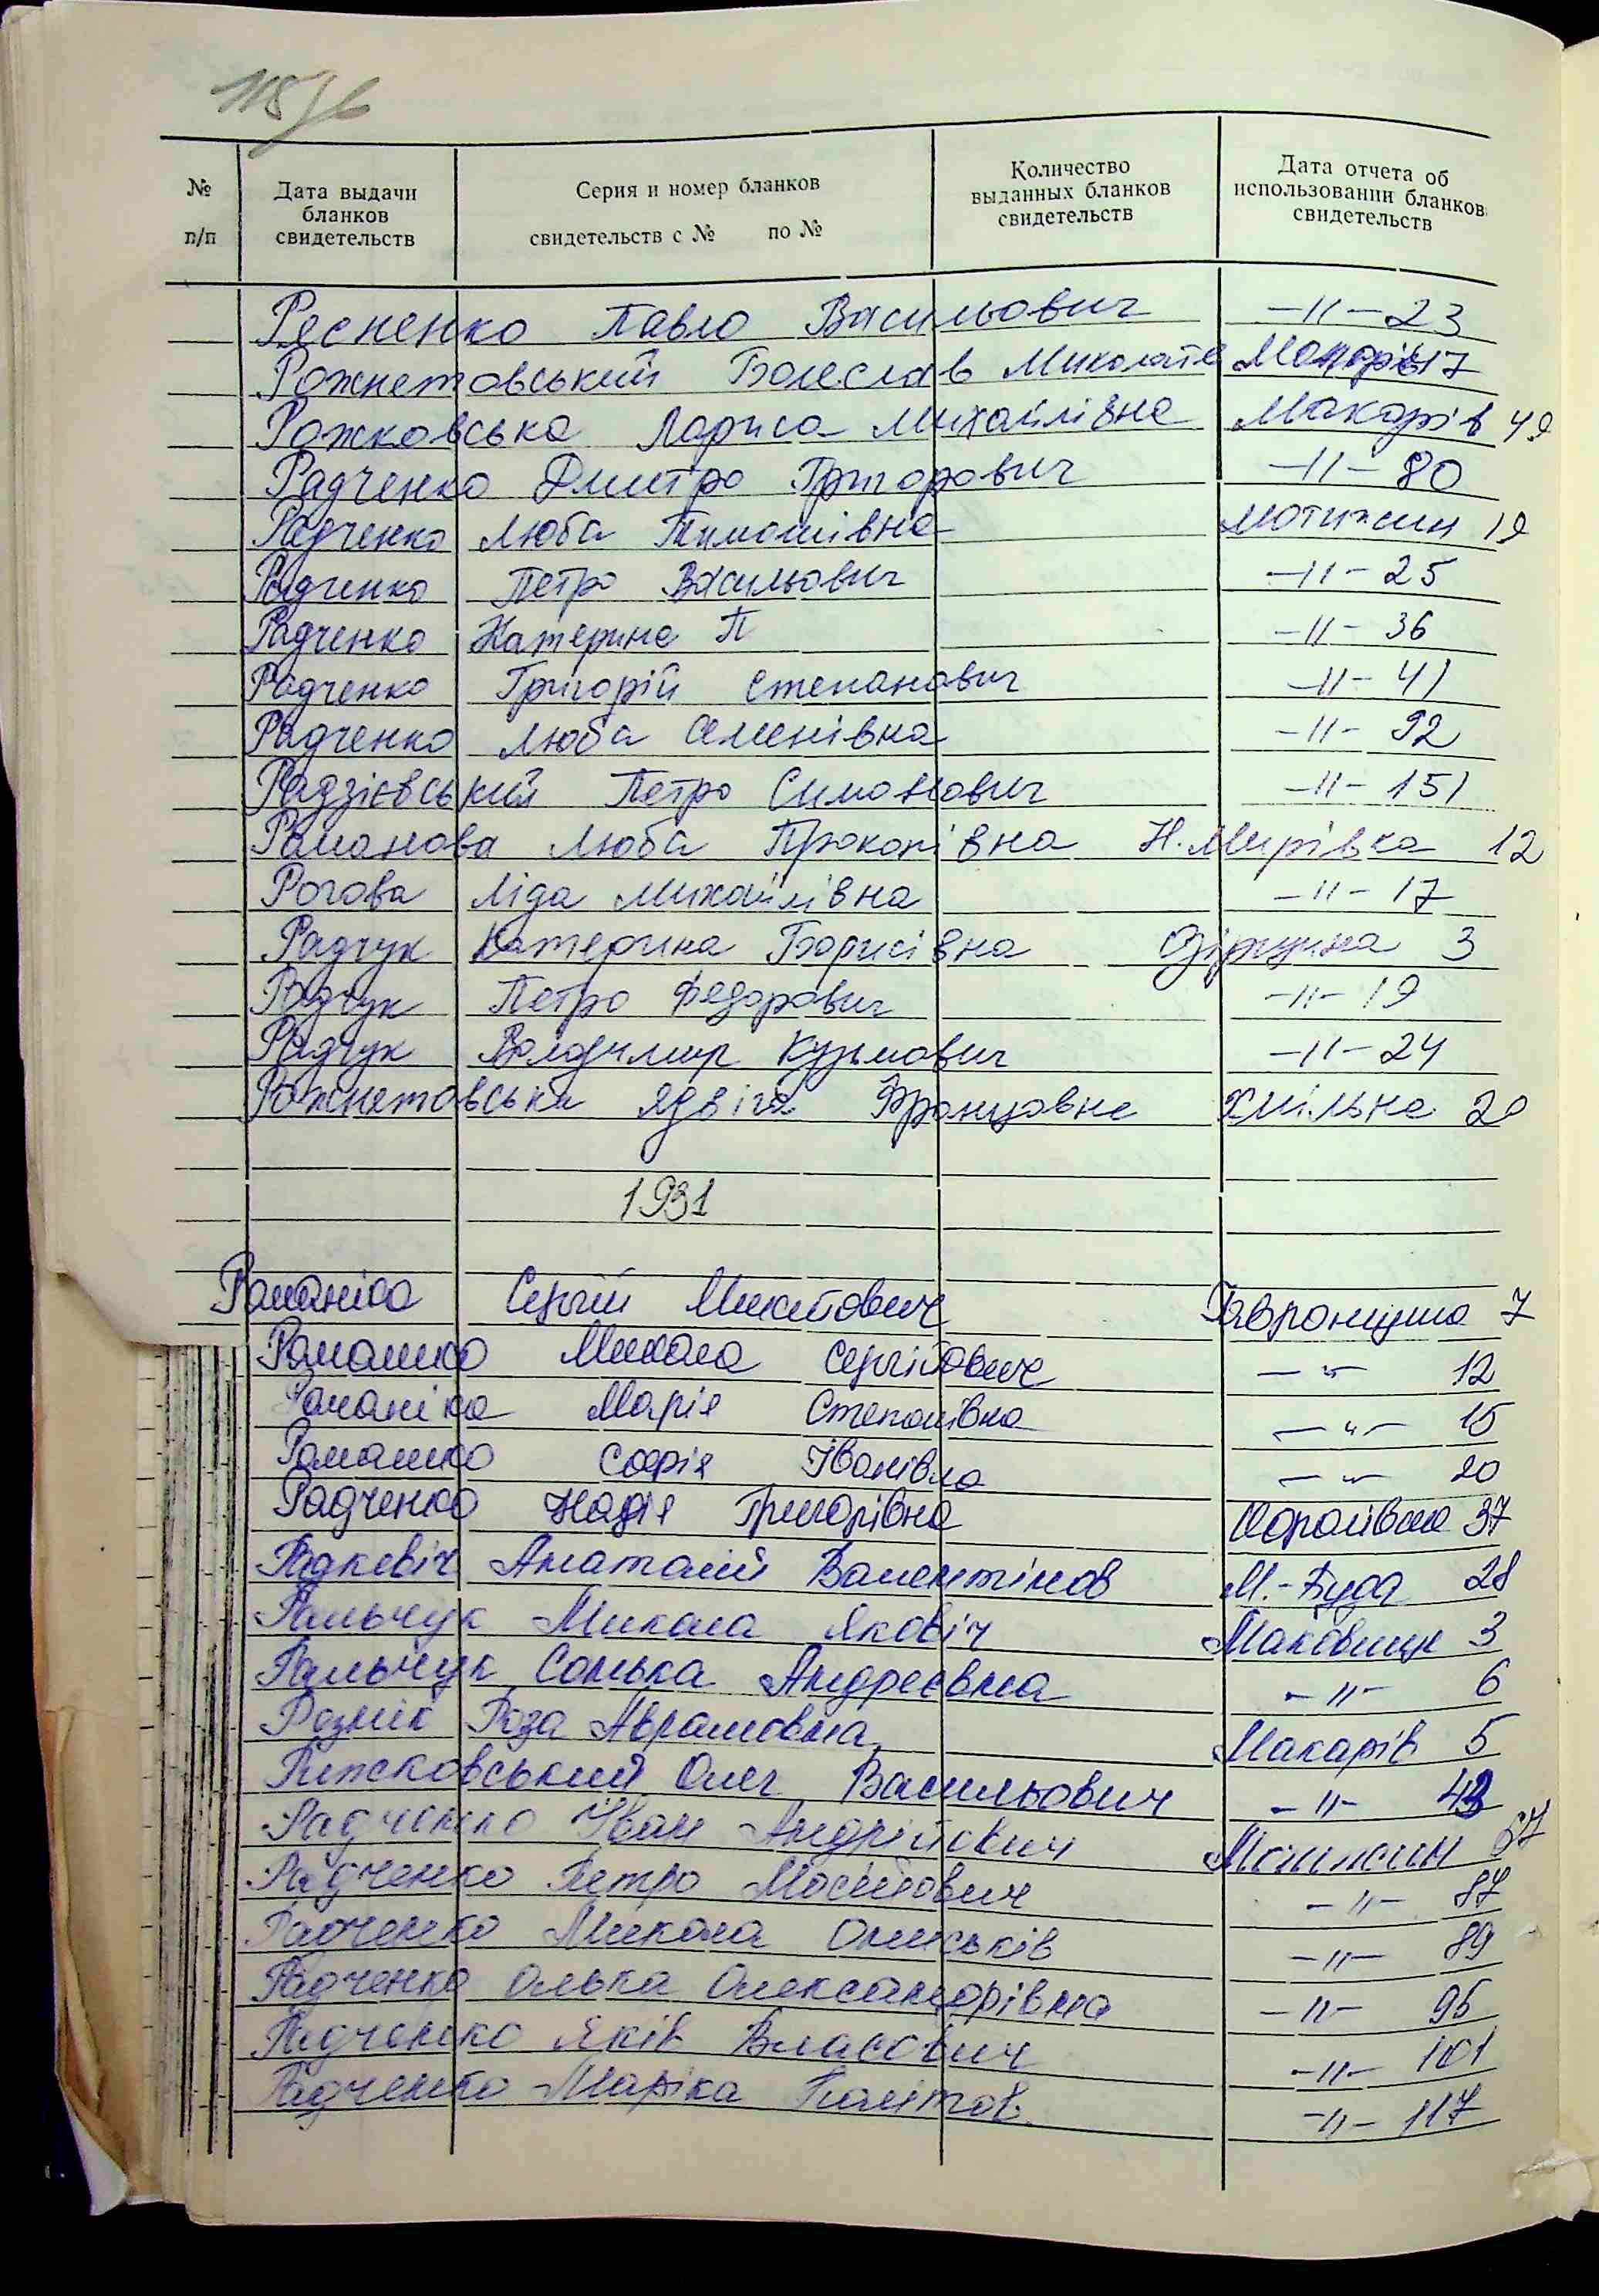 115зв
№ п/п Дата выдачи бланков свидетельств Серия и номер бланков свидетельств с № по № Количество выданных бланков свидетельств Дата отчета об использовании бланков свидетельств
Рясненко Павло Васильович —//— 23
Рожнетовський Болеслав Миколайов Макарів 17
Рожковська Лариса Михайлівна Макарів 49
Радченко Дмитро Григорович —//— 80
Радченко Люба Тимошівна Мотижин 19
Радченко Петро Васильович —//— 25
Радченко Катерина П —//— 36
Радченко Григорій Степанович —//— 41
Радченко Люба Семенівна —//— 92
Радзієвський Петро Симонович —//— 151
Романова Люба Прокопівна Н.Мирівка 12
Рогова Ліда Михайлівна —//— 17
Радчук Катерина Борисівна 3
Радчук Петро Федорович —//— 19
Радчук Володимир Кузьмович —//— 24
Рожнетовська Ядвіга Францовна Хмільна 20
1931
Сергій Микитович Гавронщина 7
Ромашко Микола Сергійович —〃— 12
Марія Степанівна —〃— 15
Ромашко Софія Іванівна —〃— 20
Радченко Надія Григорівна Королівка 37
Радкевіч Анатолій Валентінов М.-Буда 28
Ральчук Микола Яковіч Маковище 3
Ральчук Сонька Андреєвна —//— 6
Рознік Роза Абрамовна Макарів 5
Рижковський Олег Васильович —//— 43
Радченко Іван Андрійович Мотижин 67
Радченко Петро Мосійович —//— 87
Радченко Микола Ониськів —//— 89
Радченко Олька Олександрівна —//— 95
Радченко Яків Власович —//— 101
Радченко Маріка Політов. —//— 117